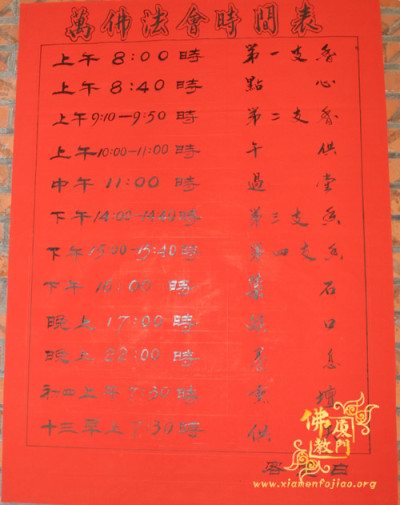 萬佛法會時間表
上午 8:00 時 第一支香
上午 8:40 時 點心
上午 9:10—9:50 時 第二支香
上午 10:00—11:00 時 午供
中午 11:00 時 過堂
下午 14:00—14:40 時 第三支香
下午 15:00—15:40 時 第四支香
下午 16:00 時 蒙石
晚上 17:00 時 口
晚上 22:00 時 息
初二上午 7:30 時 壇
十三早上 7:30 時 供
客堂白
佛教廈門
www.xiamenfojiao.org